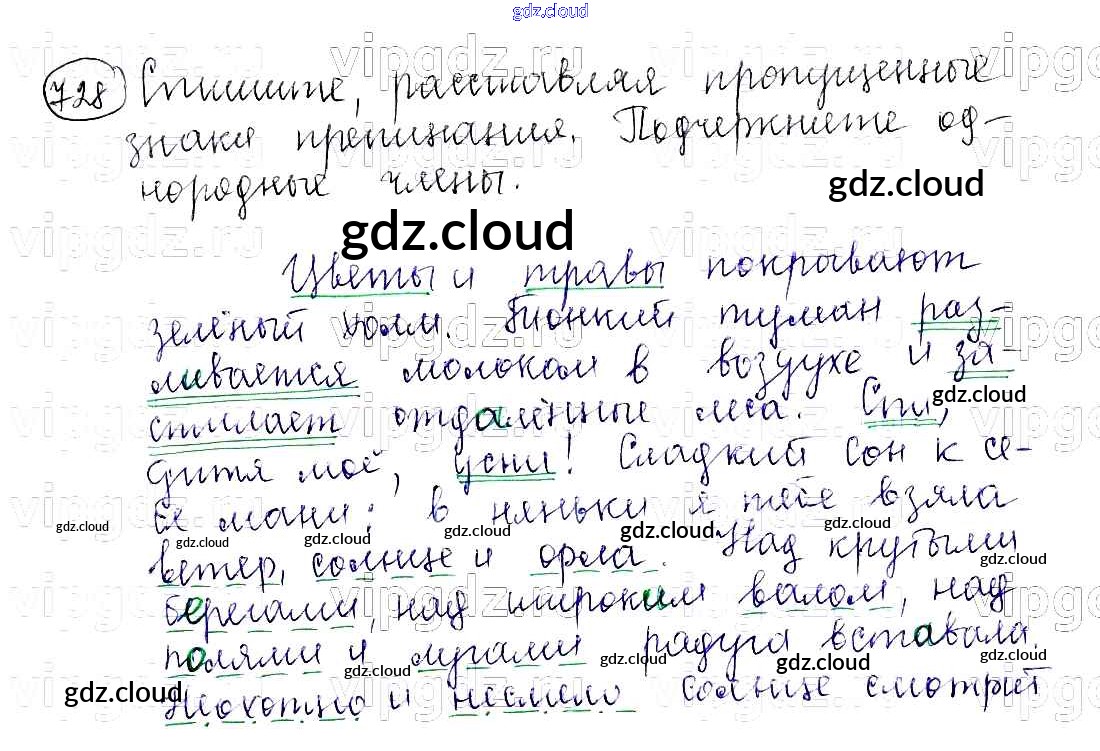 gdz.cloud
728 Спишите, расставляя пропущенные
знаки препинания. Подчеркните од-
нородные члены.
gdz.cloud
gdz.cloud
Цветы и травы покрывают
зелёный холм. Тонкий туман раз-
ливается молоком в воздухе и за-
gdz.cloud
стилает отдалённые леса. Спи,
дитя моё, усни! Сладкий сон к се-
бе мани: в няньки я тебе взяла
gdz.cloud gdz.cloud gdz.cloud gdz.cloud gdz.cloud gdz.cloud
ветер, солнце и орла. Над крутыми
gdz.cloud
берегами, над широким валом, над
полями и лугами радуга вставала.
gdz.cloud gdz.cloud gdz.cloud gdz.cloud gdz.cloud
Неохотно и несмело солнце смотрит
vipgdz.ru